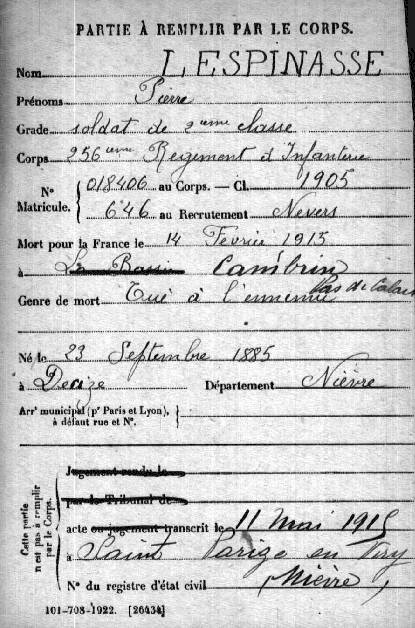 PARTIE À REMPLIR PAR LE CORPS.
Nom LESPINASSE
Prénoms Pierre
Grade soldat de 2ème classe
Corps 256ème Régiment d'Infanterie
N° Matricule. { 018406 au Corps. — Cl. 1905
646 au Recrutement Nevers
Mort pour la France le 14 Février 1915
à La Bassée Cambrin
Pas de Calais
Genre de mort Tué à l'ennemi
Né le 23 Septembre 1885
à Decize Département Nièvre
Arrt municipal (pr Paris et Lyon), à défaut rue et N°. }
Cette partie n'est pas à remplir par le Corps. {
Jugement rendu le
par le Tribunal de
acte ou jugement transcrit le 11 Mai 1915
à Saint Parize en Viry
(Nièvre)
N° du registre d'état civil
101-708-1922. [26434]